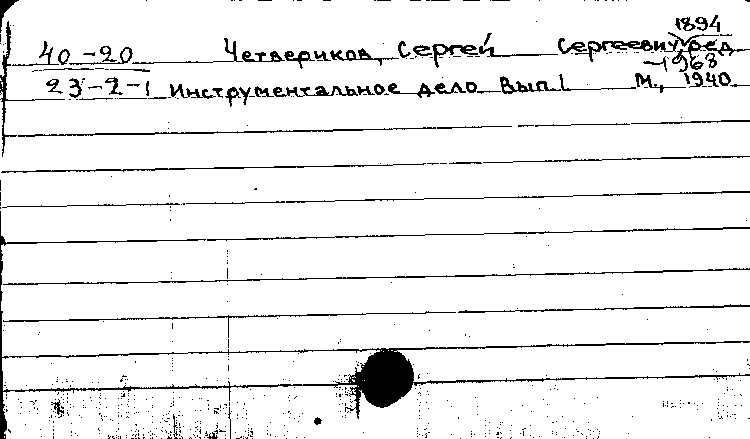 1894
40-20 Четвериков, Сергей Сергеевич, ред
-1968
23-2-1 Инструментальное дело. Вып. 1 М., 1940.